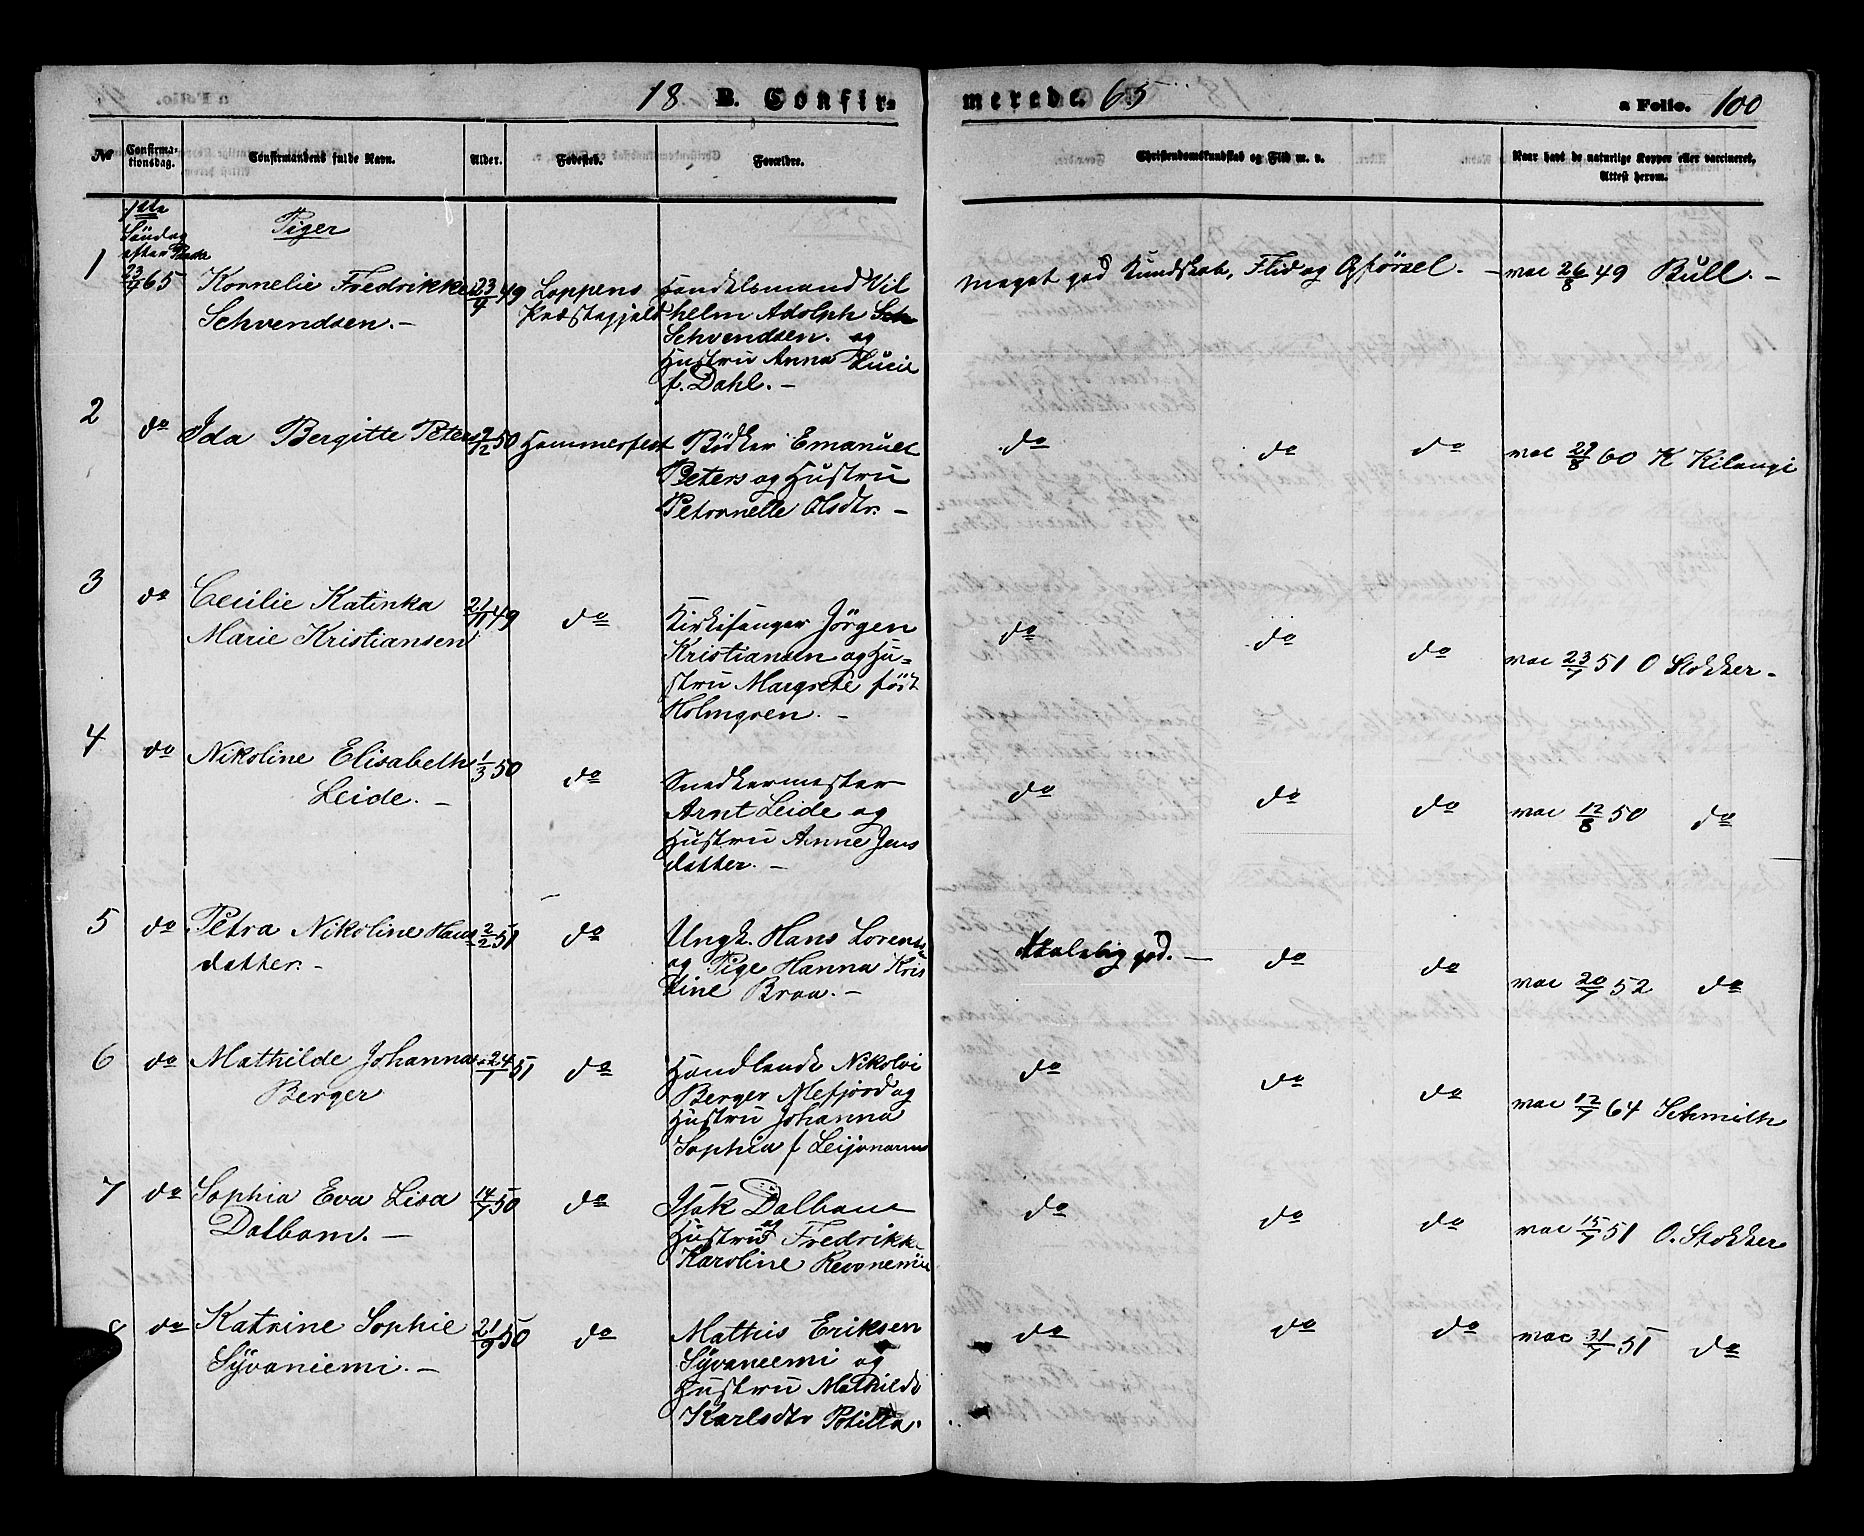 18 B. Confir-
merede. 65
a Folio. 100
No Confirmationsdag. Confirmandens fulde Navn. Alder. Fødested. Forældre. Christendomskundskab og Flid m. v. Naar havt de naturlige Kopper eller vaccineret, Attest herom.
1ste
Søndag
efter Paaske
Piger
1 23/4 65 Kornelie Fredrikke
Schvendsen. –
23/4 49 Loppens
Præstegjeld
Handelsmand Vil
helm Adolph
Schvendsen. og
Hustru Anna Lucie
f. Dahl. –
Meget god Kundskab, Flid og Opførsel. – vac 26/8 49 Bull. –
2 do Ida Bergitte Peters 2/12 50 Hammerfest
Bødker Emanuel
Peters og Hustru
Petronelle Olsdtr. –
do do do vac 29/8 60 K Kilengi
3 do Cecilie Katinka
Marie Kristiansen
21/11 49 do
Kirkesanger Jörgen
Kristiansen og Hu=
stru Margrete født
Holmgren. –
do do do vac 23/7 51 O Stokker –
4 do Nikoline Elisabeth
Leide. –
1/3 50 do
Snedkermester
Arnt Leide og
Hustru Anne Jens
datter. –
do do do vac 12/8 50 do
5 do Petra Nikoline Hans
datter. –
2/2 51 do
Ungk. Hans Lorents
og Pige Hanna Kris
tine Braa. –
Taalelig god. – do do vac 20/7 52 do
6 do Mathilde Johanna
Berger
24/1 51 do
Handlende Nikolai
Berger Mefjord og
Hustru Johanna
Sophia f Leijonarm
do do do vac 12/7 64 Schmith
7 do Sophia Eva Lisa
Dalbom. –
14/7 50 do
Isak Dalbom
og
Hustru Fredrikke
Karoline
do do do vac 15/7 51 O. Stokker
8 do Katrine Sophie
Syvaniemi. –
21/9 50 do
Mathis Eriksen
Syvaneemi og
Hustru Mathilde
Karlsdtr Potilla.
do do do vac 31/7 51 do